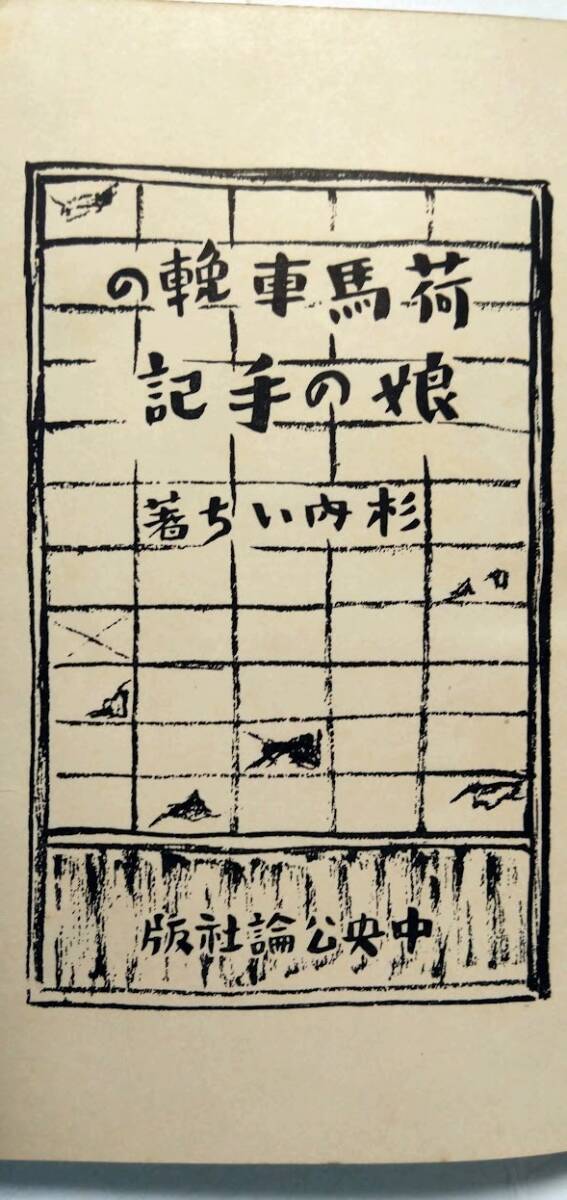 荷馬車輓の
娘の手記
杉内いち著
中央公論社版